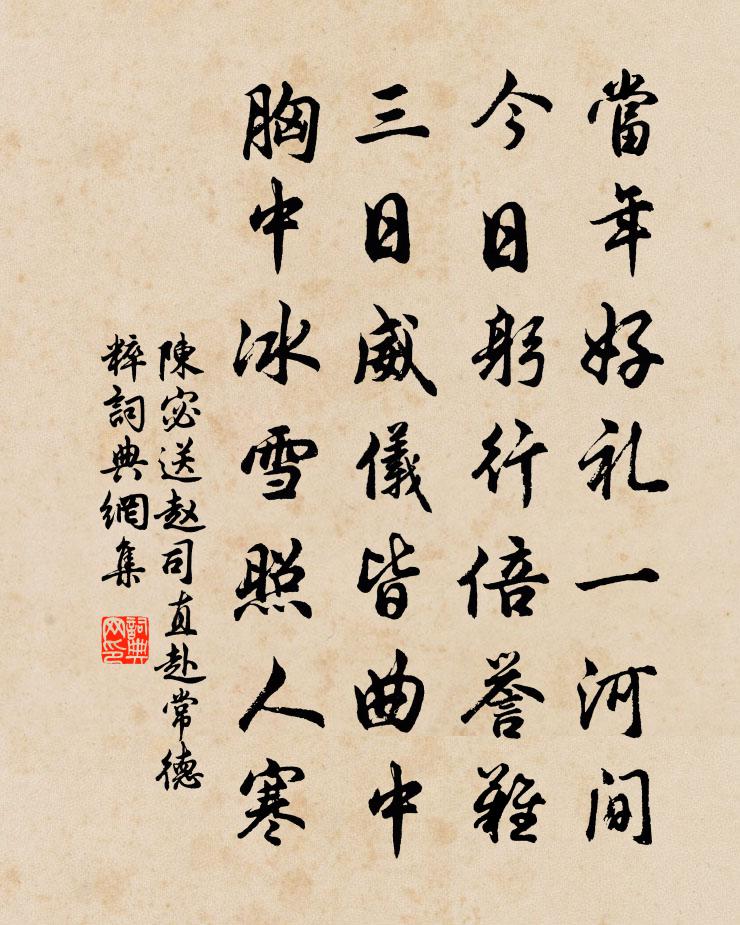 當年好礼一河间
今日躬行倍誉難
三日威儀皆曲中
胸中冰雪照人寒
陳宓送赵司直赴常德
粹詞典網集
詞典
网印